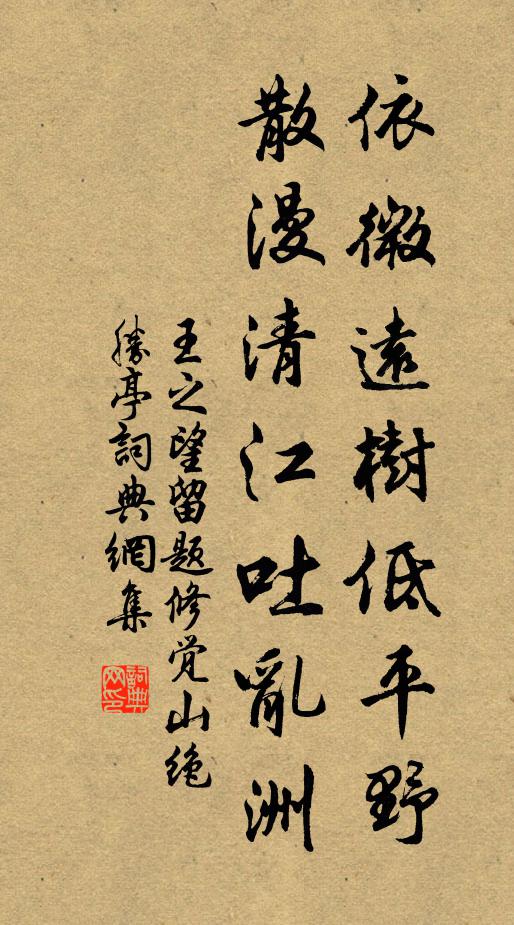 依微遠樹低平野
散漫清江吐亂洲
王之望留题修觉山绝
勝亭詞典網集
詞典网印